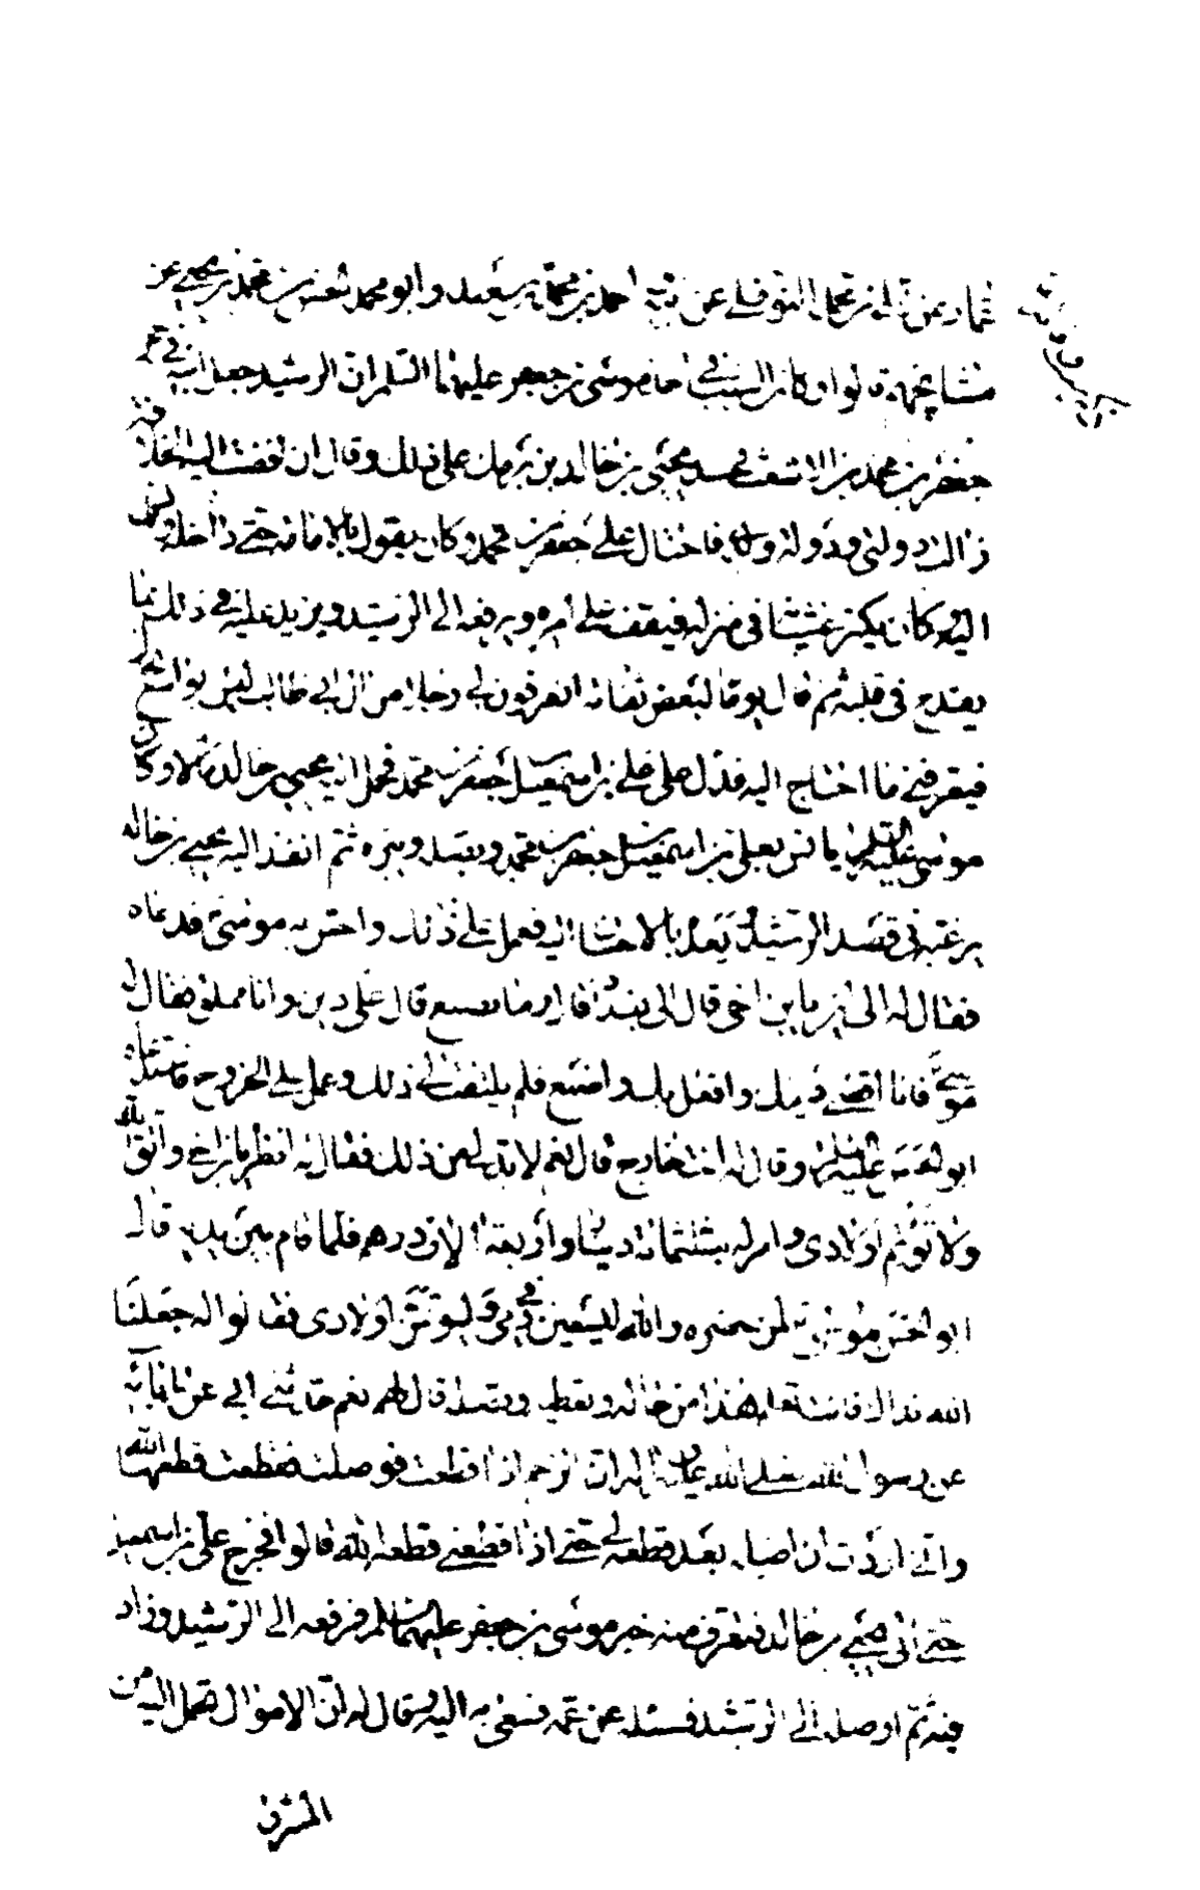 عمار عن علي بن محمد النوفلي عن ابيه احمد بن محمد بن سعيد وابو محمد الحسن بن محمد بن يحيى عن
مشايخهم قالوا وكان السبب في اخذ موسى بن جعفر عليهما السلم ان الرشيد جعل ابنه في حجر
جعفر بن محمد بن الاشعث فحسده يحيى بن خالد بن برمك على ذلك وقال ان افضت اليه الخلافة
زالت دولتي ودولة ولدي فاحتال على جعفر بن محمد وكان يقول بالامامة حتى داخله وانس
اليه وكان يكثر غشيانه في منزله فيقف على امره ويرفعه الى الرشيد ويزيد عليه في ذلك بما
يقدح في قلبه ثم قال يوما لبعض ثقاته اتعرفون لي رجلا من آل ابي طالب ليس بواسع الحال
فيعرفني ما احتاج اليه فدل على علي بن اسمعيل بن جعفر بن محمد فحمل اليه يحيى بن خالد مالا وكان
موسى عليه السلم يانس بعلي بن اسمعيل بن جعفر بن محمد ويصله ويبره ثم انفذ اليه يحيى بن خالد
يرغبه في قصد الرشيد ويعده بالاحسان اليه فعمل على ذلك واحس به موسى فدعاه
فقال له الى اين يا بن اخي قال الى بغداد قال وما تصنع قال علي دين وانا مملق فقال له
موسى فانا اقضي دينك وافعل بك واصنع فلم يلتفت الى ذلك وعمل على الخروج فاستدعاه
ابو الحسن عليه السلم وقال له انت خارج قال نعم لابد لي من ذلك فقال له انظر يا بن اخي واتق الله
ولا تؤتم اولادي وامر له بثلثمائة دينار واربعة الاف درهم فلما قام من بين يديه قال
ابو الحسن موسى لمن حضره والله ليسعين في دمي وليوتمن اولادي فقالوا له جعلنا
الله فداك فانت تعلم هذا من حاله وتعطيه وتصله قال لهم نعم حدثني ابي عن ابائه
عن رسول الله صلى الله عليه واله ان الرحم اذا قطعت فوصلت فقطعت قطعها الله
واني اردت ان اصله بعد قطعه لي حتى اذا قطعني قطعه الله قالوا فخرج علي بن اسمعيل
حتى اتى يحيى بن خالد فتعرف منه خبر موسى بن جعفر عليهما السلم فرفعه الى الرشيد وزاد
فيه ثم اوصله الى الرشيد فسئله عن عمه فسعى به اليه وقال له ان الاموال تحمل اليه من
المشرق